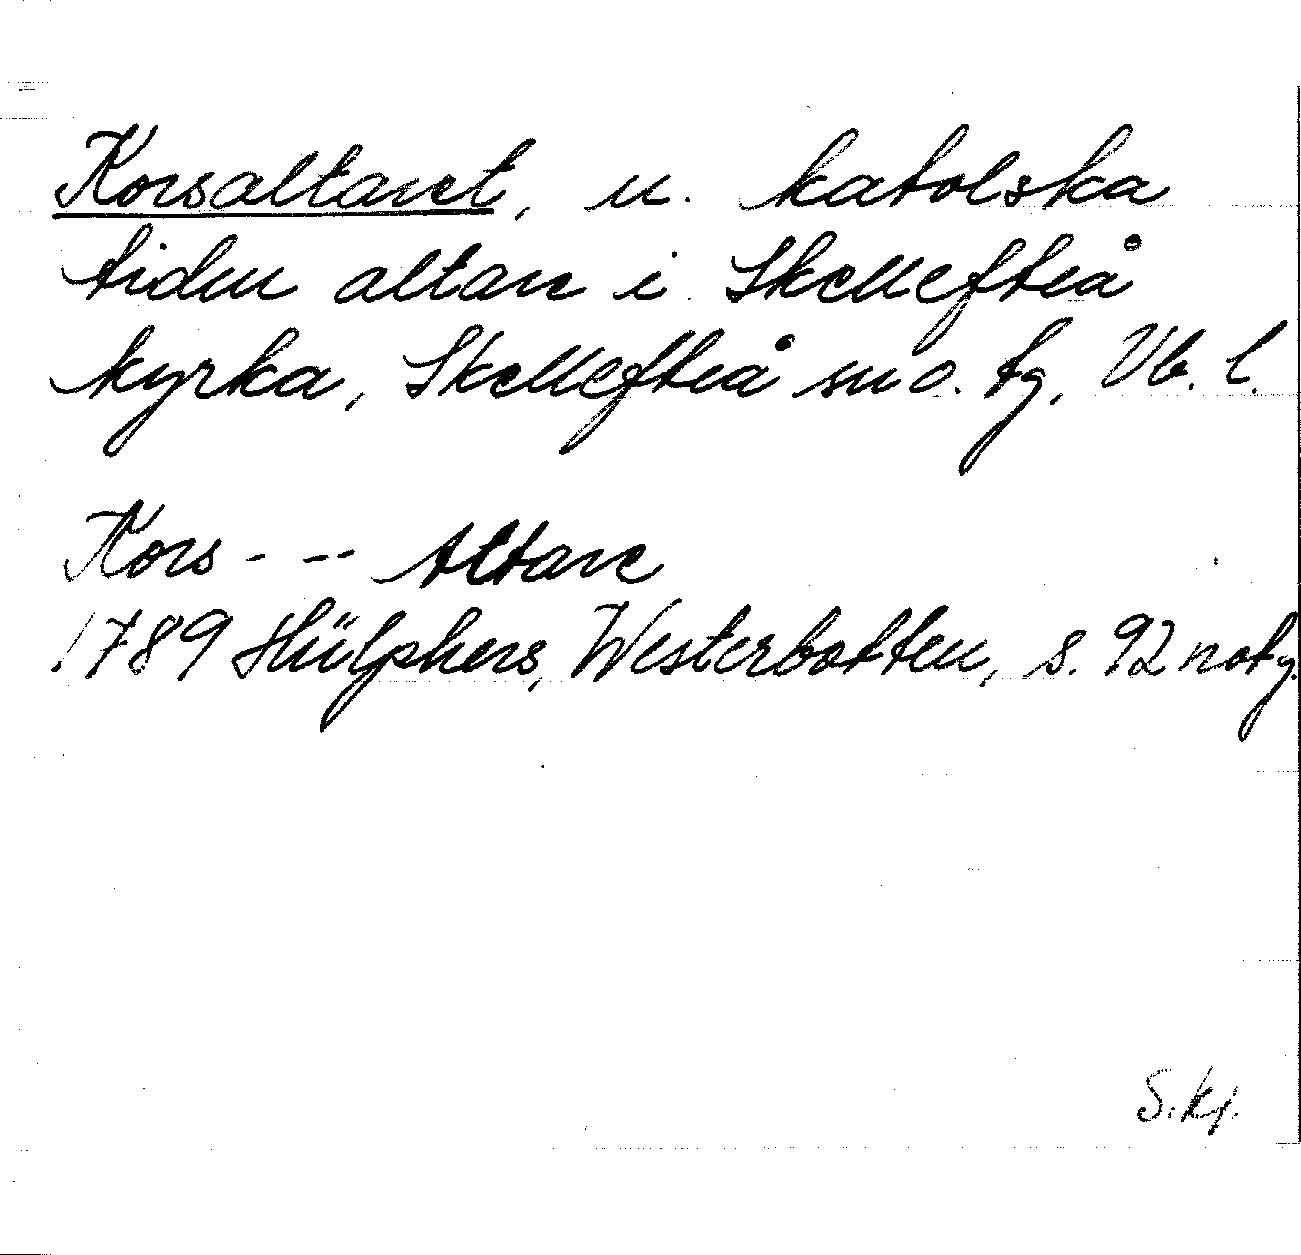 Korsaltaret, u. katolska
tiden altare i Skellefteå
kyrka, Skellefteå sn o. tg, Vb. l.
Kors - -- Altare
1789 Hülphers, Westerbotten, s. 92 not y.
S. Kj.